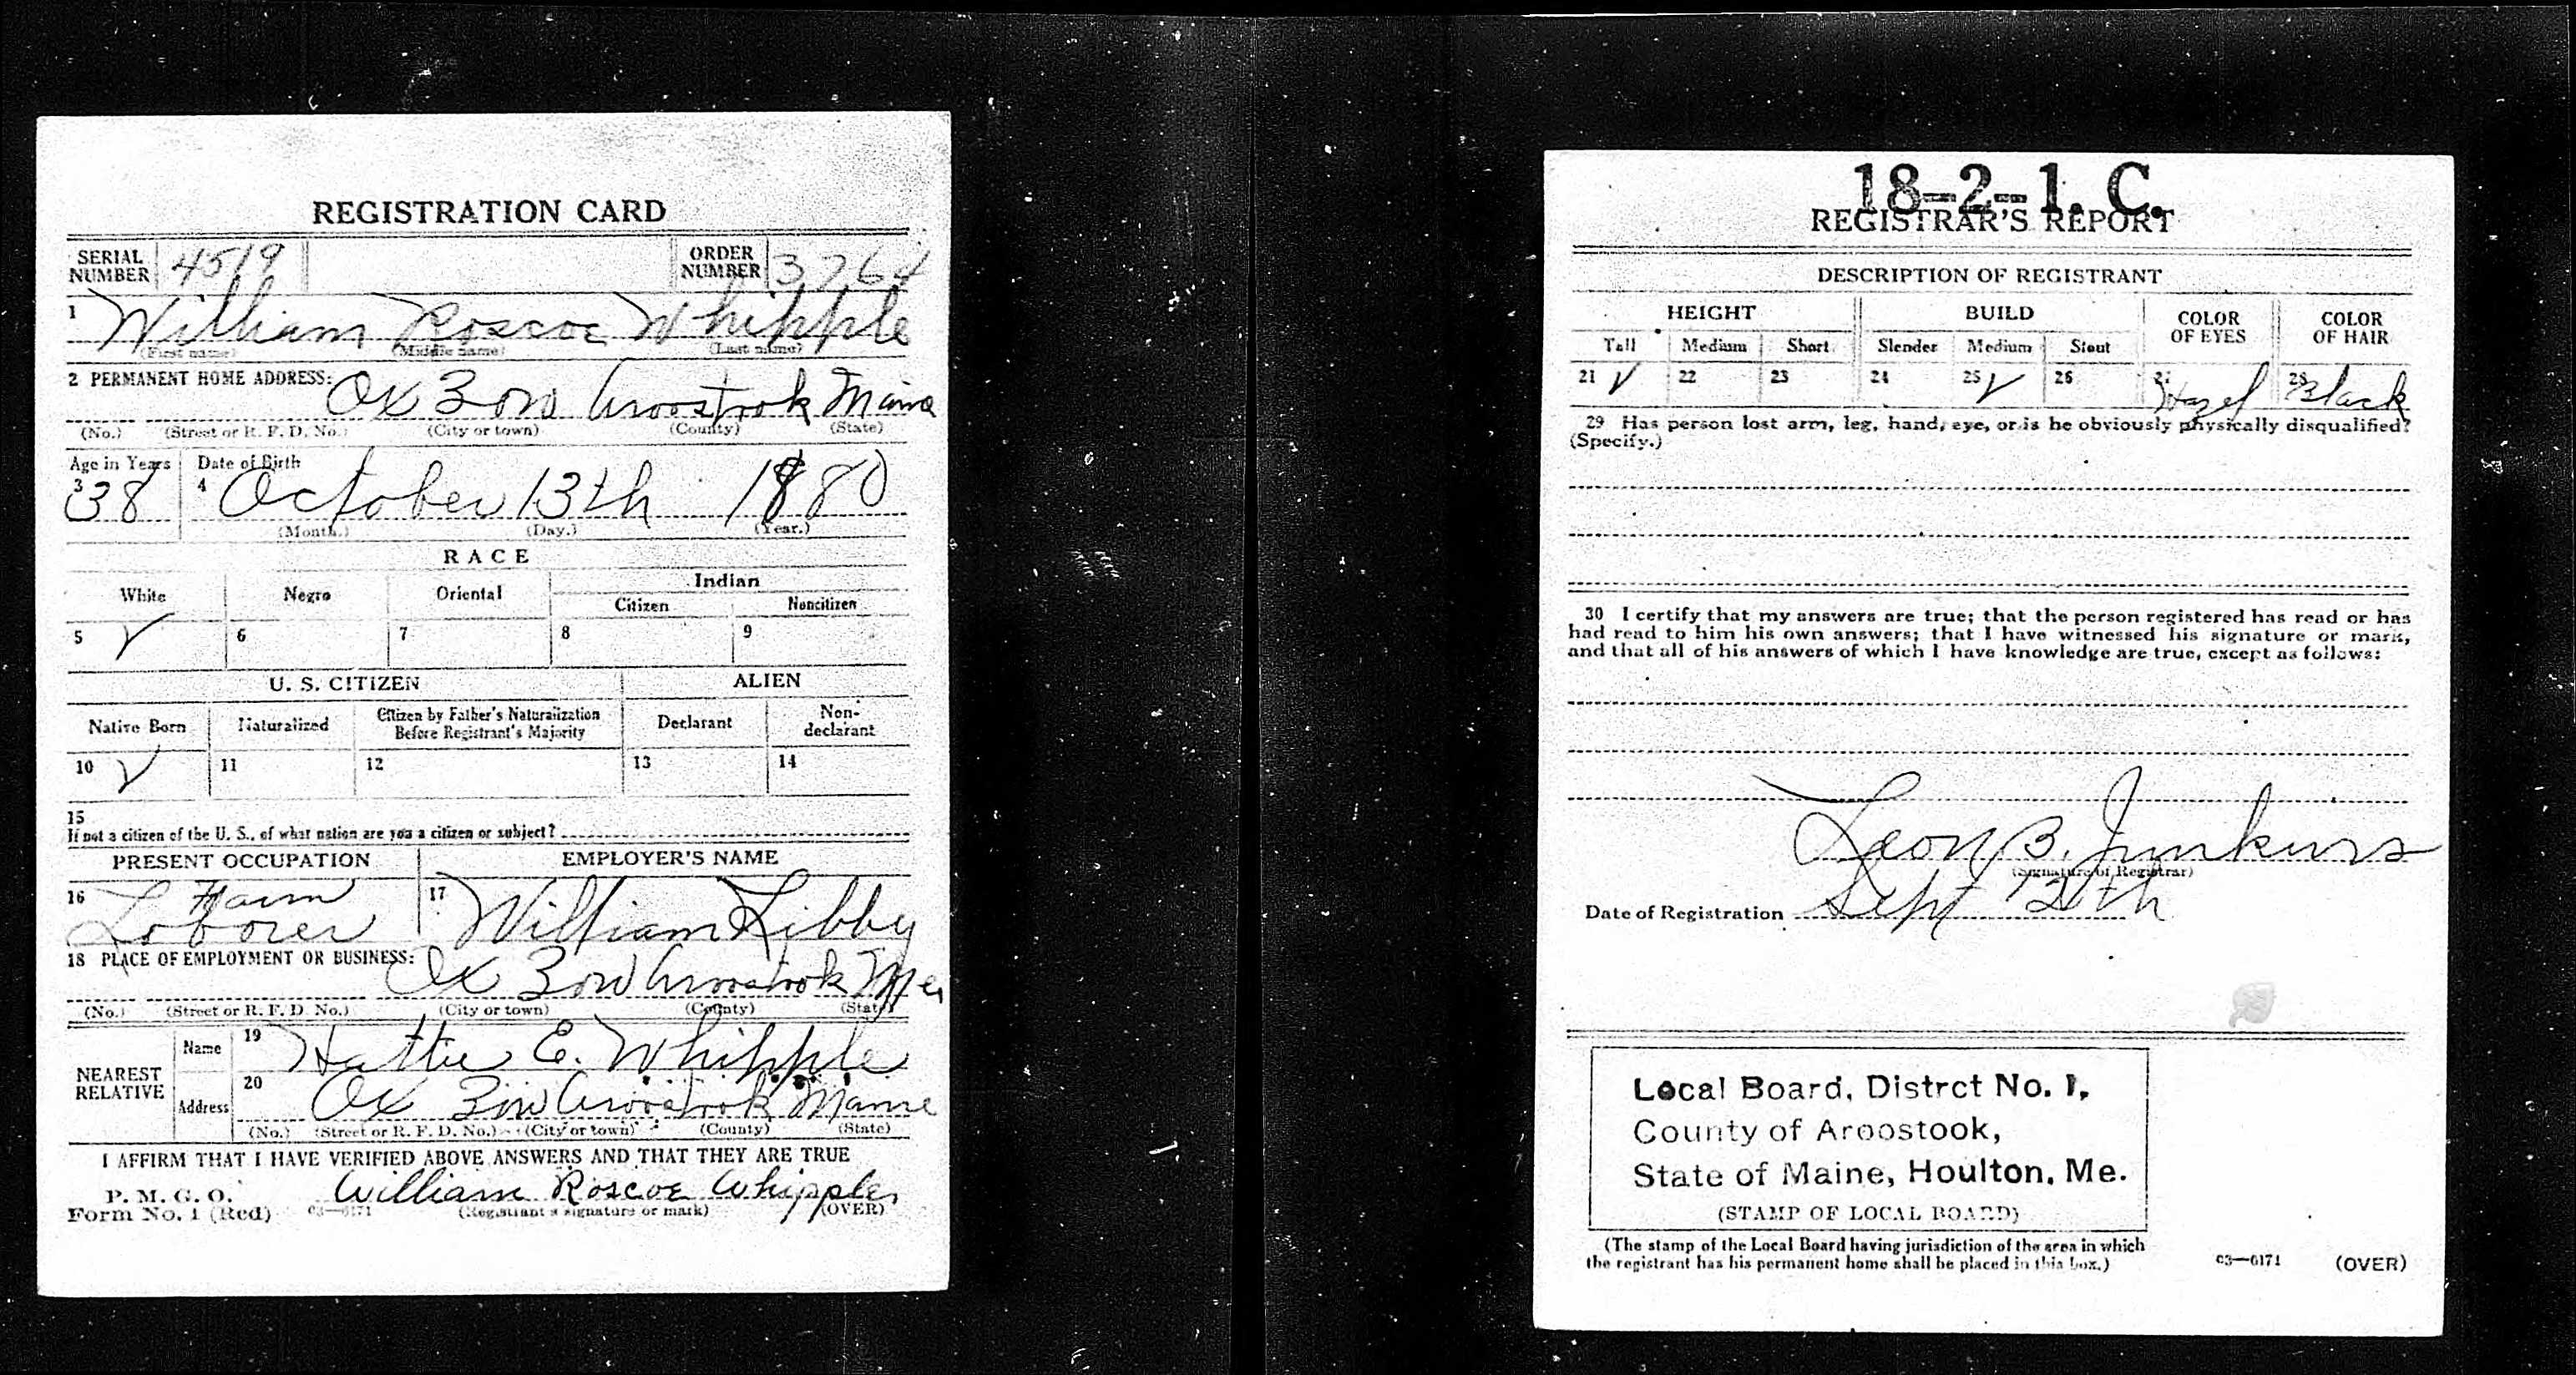 REGISTRATION CARD
SERIAL NUMBER 4519 ORDER NUMBER 3764
1 William Roscoe Whipple
(First name) (Middle name) (Last name)
2 PERMANENT HOME ADDRESS: Ox Bow Aroostook Maine
(No.) (Street or R. F. D. No.) (City or town) (County) (State)
Age in Years Date of Birth
3 38 4 October 13th 1880
(Month.) (Day.) (Year.)
RACE
White Negro Oriental Indian
Citizen Noncitizen
5 ✓ 6 7 8 9
U. S. CITIZEN ALIEN
Native Born Naturalized Citizen by Father's Naturalization Before Registrant's Majority Declarant Non-declarant
10 ✓ 11 12 13 14
15
If not a citizen of the U. S., of what nation are you a citizen or subject?
PRESENT OCCUPATION EMPLOYER'S NAME
16 Farm Laborer 17 William Libby
18 PLACE OF EMPLOYMENT OR BUSINESS: Ox Bow Aroostook Me
(No.) (Street or R. F. D. No.) (City or town) (County) (State)
NEAREST RELATIVE Name 19 Hattie E. Whipple
Address 20 Ox Bow Aroostook Maine
(No.) (Street or R. F. D. No.) (City or town) (County) (State)
I AFFIRM THAT I HAVE VERIFIED ABOVE ANSWERS AND THAT THEY ARE TRUE
P. M. G. O.
Form No. 1 (Red) 03—6171 William Roscoe Whipple
(Registrant's signature or mark) (OVER)
18-2-1. C.
REGISTRAR'S REPORT
DESCRIPTION OF REGISTRANT
HEIGHT BUILD COLOR OF EYES COLOR OF HAIR
Tall Medium Short Slender Medium Stout
21 ✓ 22 23 24 25 ✓ 26 27 Hazel 28 Black
29 Has person lost arm, leg, hand, eye, or is he obviously physically disqualified?
(Specify.)
30 I certify that my answers are true; that the person registered has read or has
had read to him his own answers; that I have witnessed his signature or mark,
and that all of his answers of which I have knowledge are true, except as follows:
Leon B. Junkins
(Signature of Registrar)
Date of Registration Sept 12th
Local Board, Distrct No. 1,
County of Aroostook,
State of Maine, Houlton, Me.
(STAMP OF LOCAL BOARD)
(The stamp of the Local Board having jurisdiction of the area in which
the registrant has his permanent home shall be placed in this box.)
03—6171 (OVER)